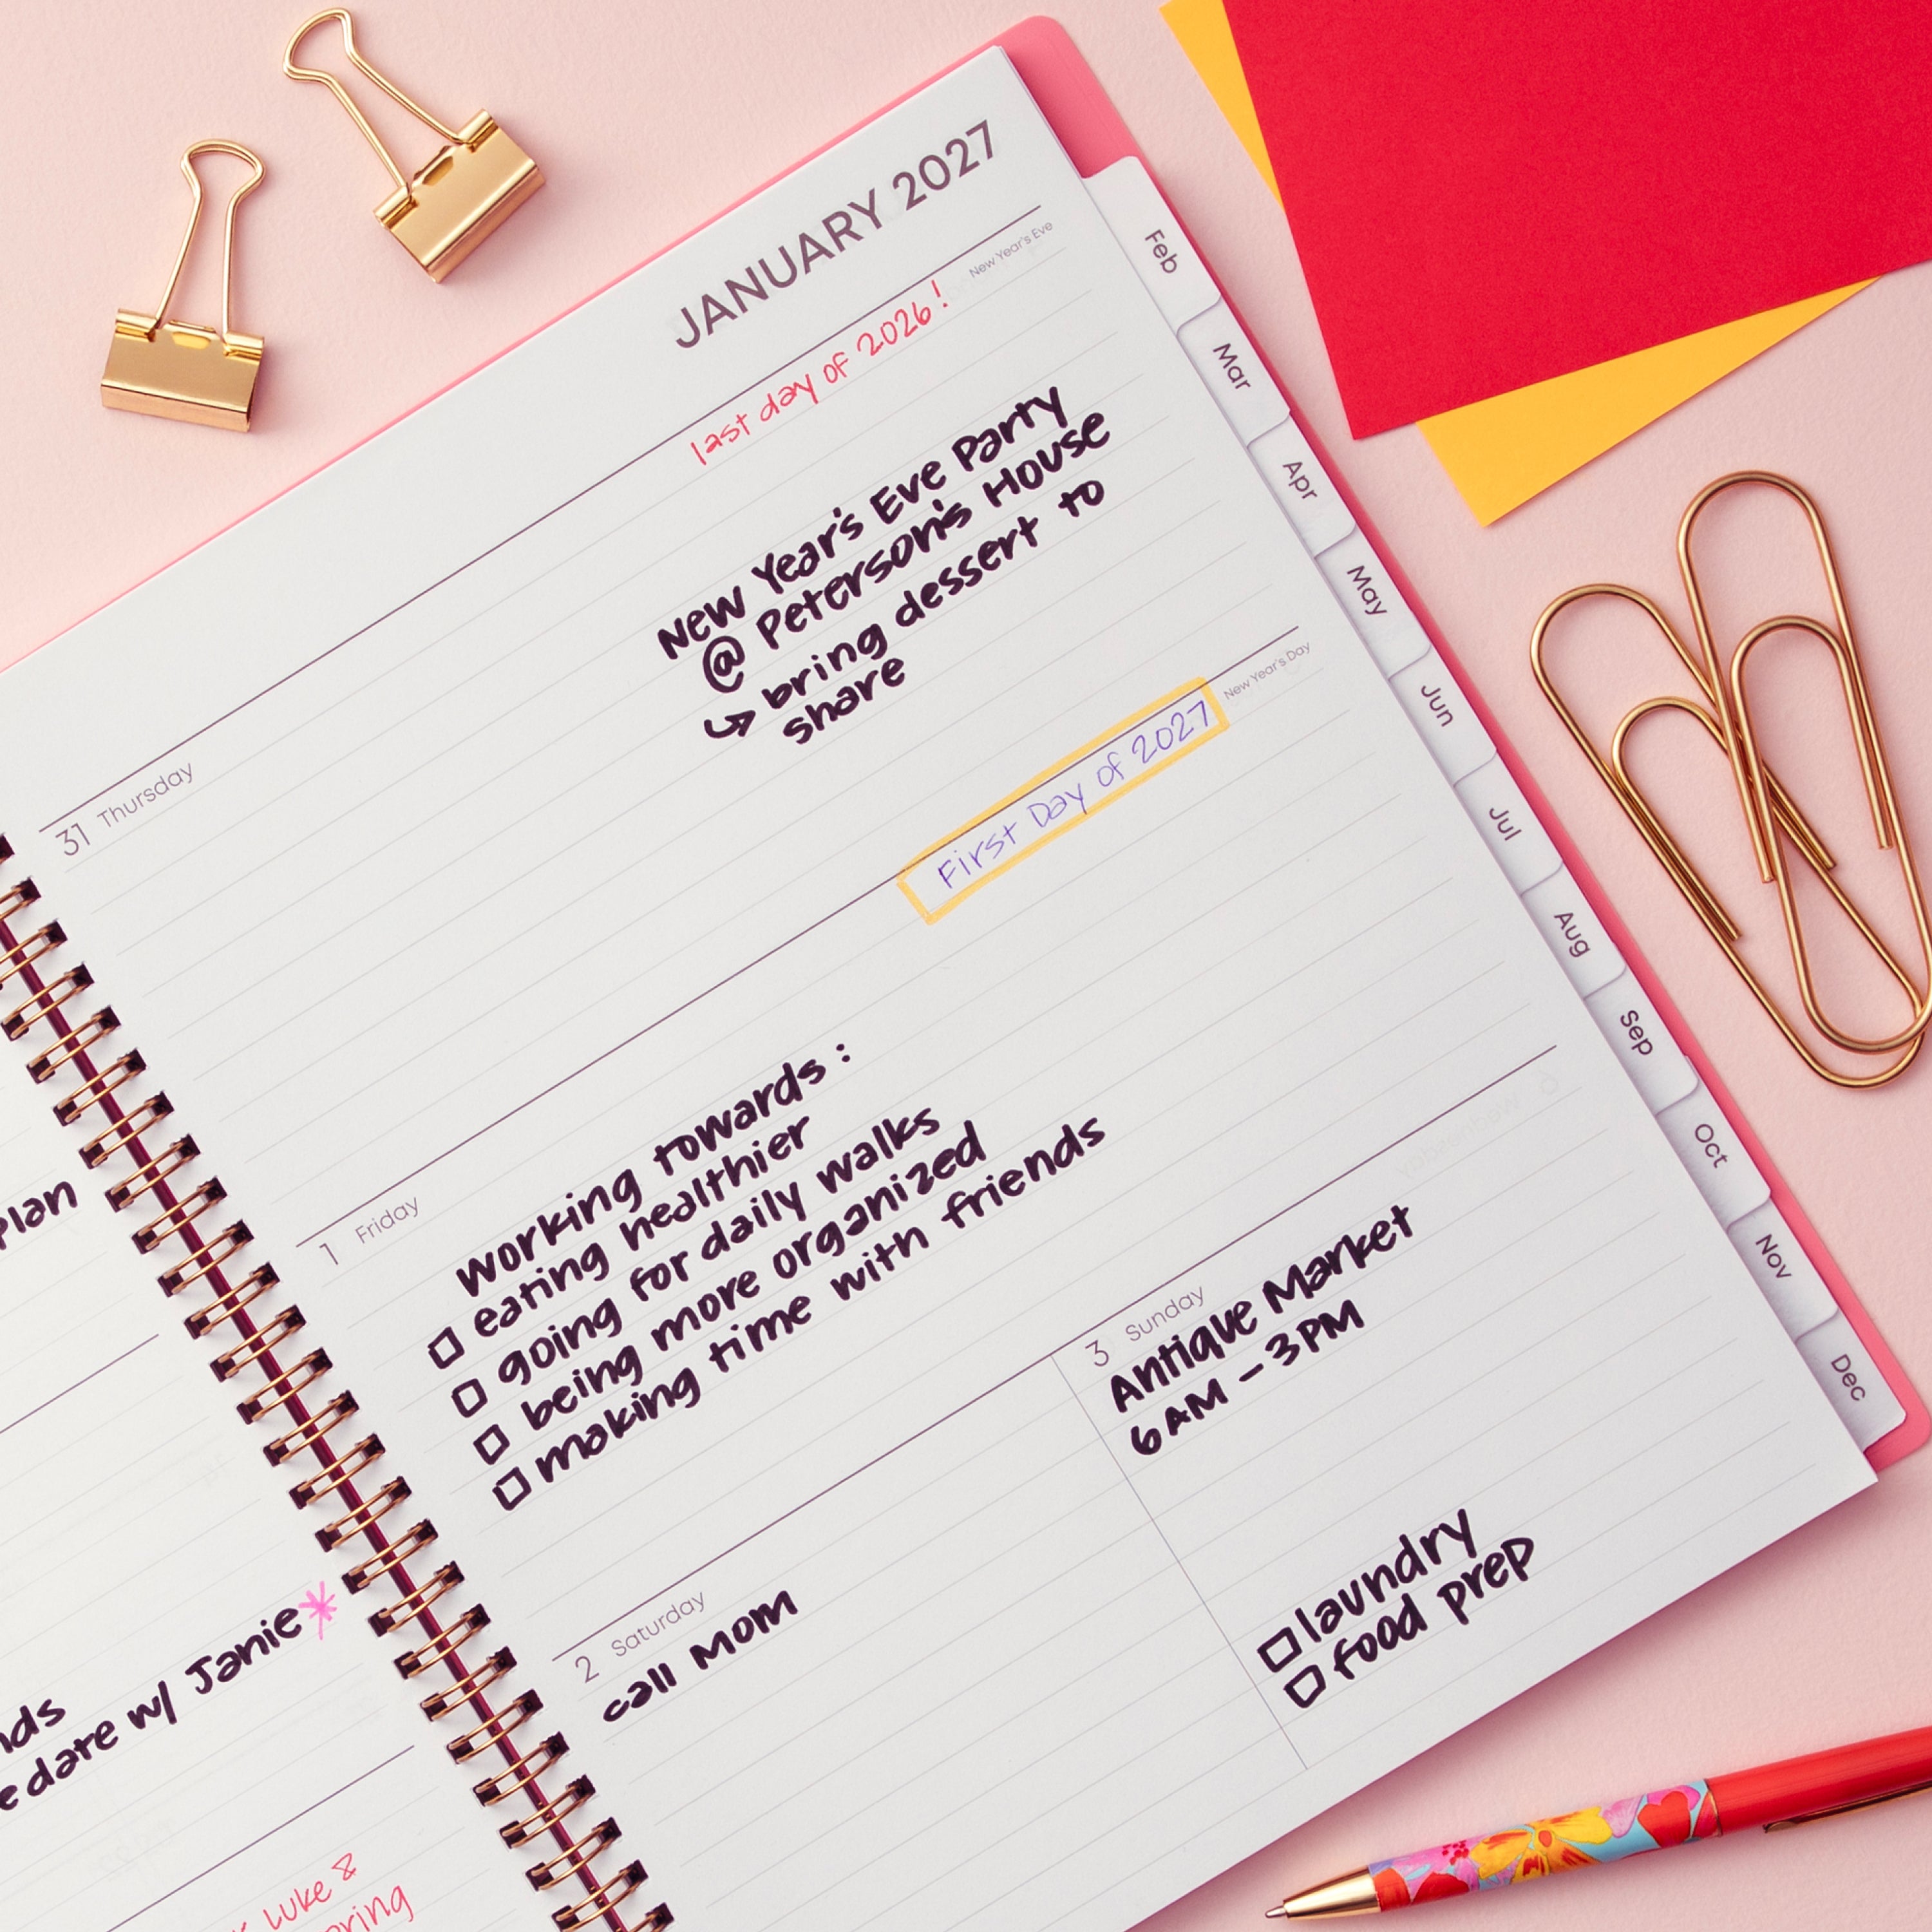 JANUARY 2027
New Year's Eve
last day of 2026!
31 Thursday
New Year's Eve Party
@ Peterson's House
↳ bring dessert to
share
New Year's Day
First Day of 2027
1 Friday
Working towards:
☐ eating healthier
☐ going for daily walks
☐ being more organized
☐ making time with friends
2 Saturday
call Mom
3 Sunday
Antique Market
6AM - 3PM
☐ laundry
☐ food prep
Feb
Mar
Apr
May
Jun
Jul
Aug
Sep
Oct
Nov
Dec
Plan
date w/ Janie*
Luke &